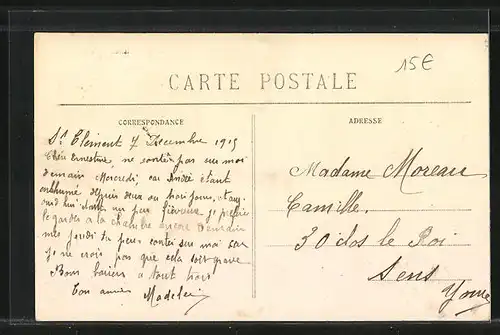 15€
CARTE POSTALE
CORRESPONDANCE
ADRESSE
St Clément 7 Décembre 1915
Chère Ernestine, ne compte pas sur moi
demain Mercredi, car André étant
enrhumé depuis deux ou trois jours, et auj-
ourd'hui étant un peu fiévreux, je préfère
le garder à la chambre encore demain
mais jeudi tu peux compter sur moi car
je ne crois pas que cela soit grave
Bons baisers à tous trois
Ton amie
Madame Moreau
Camille.
30 clos le Roi
Sens
Yonne